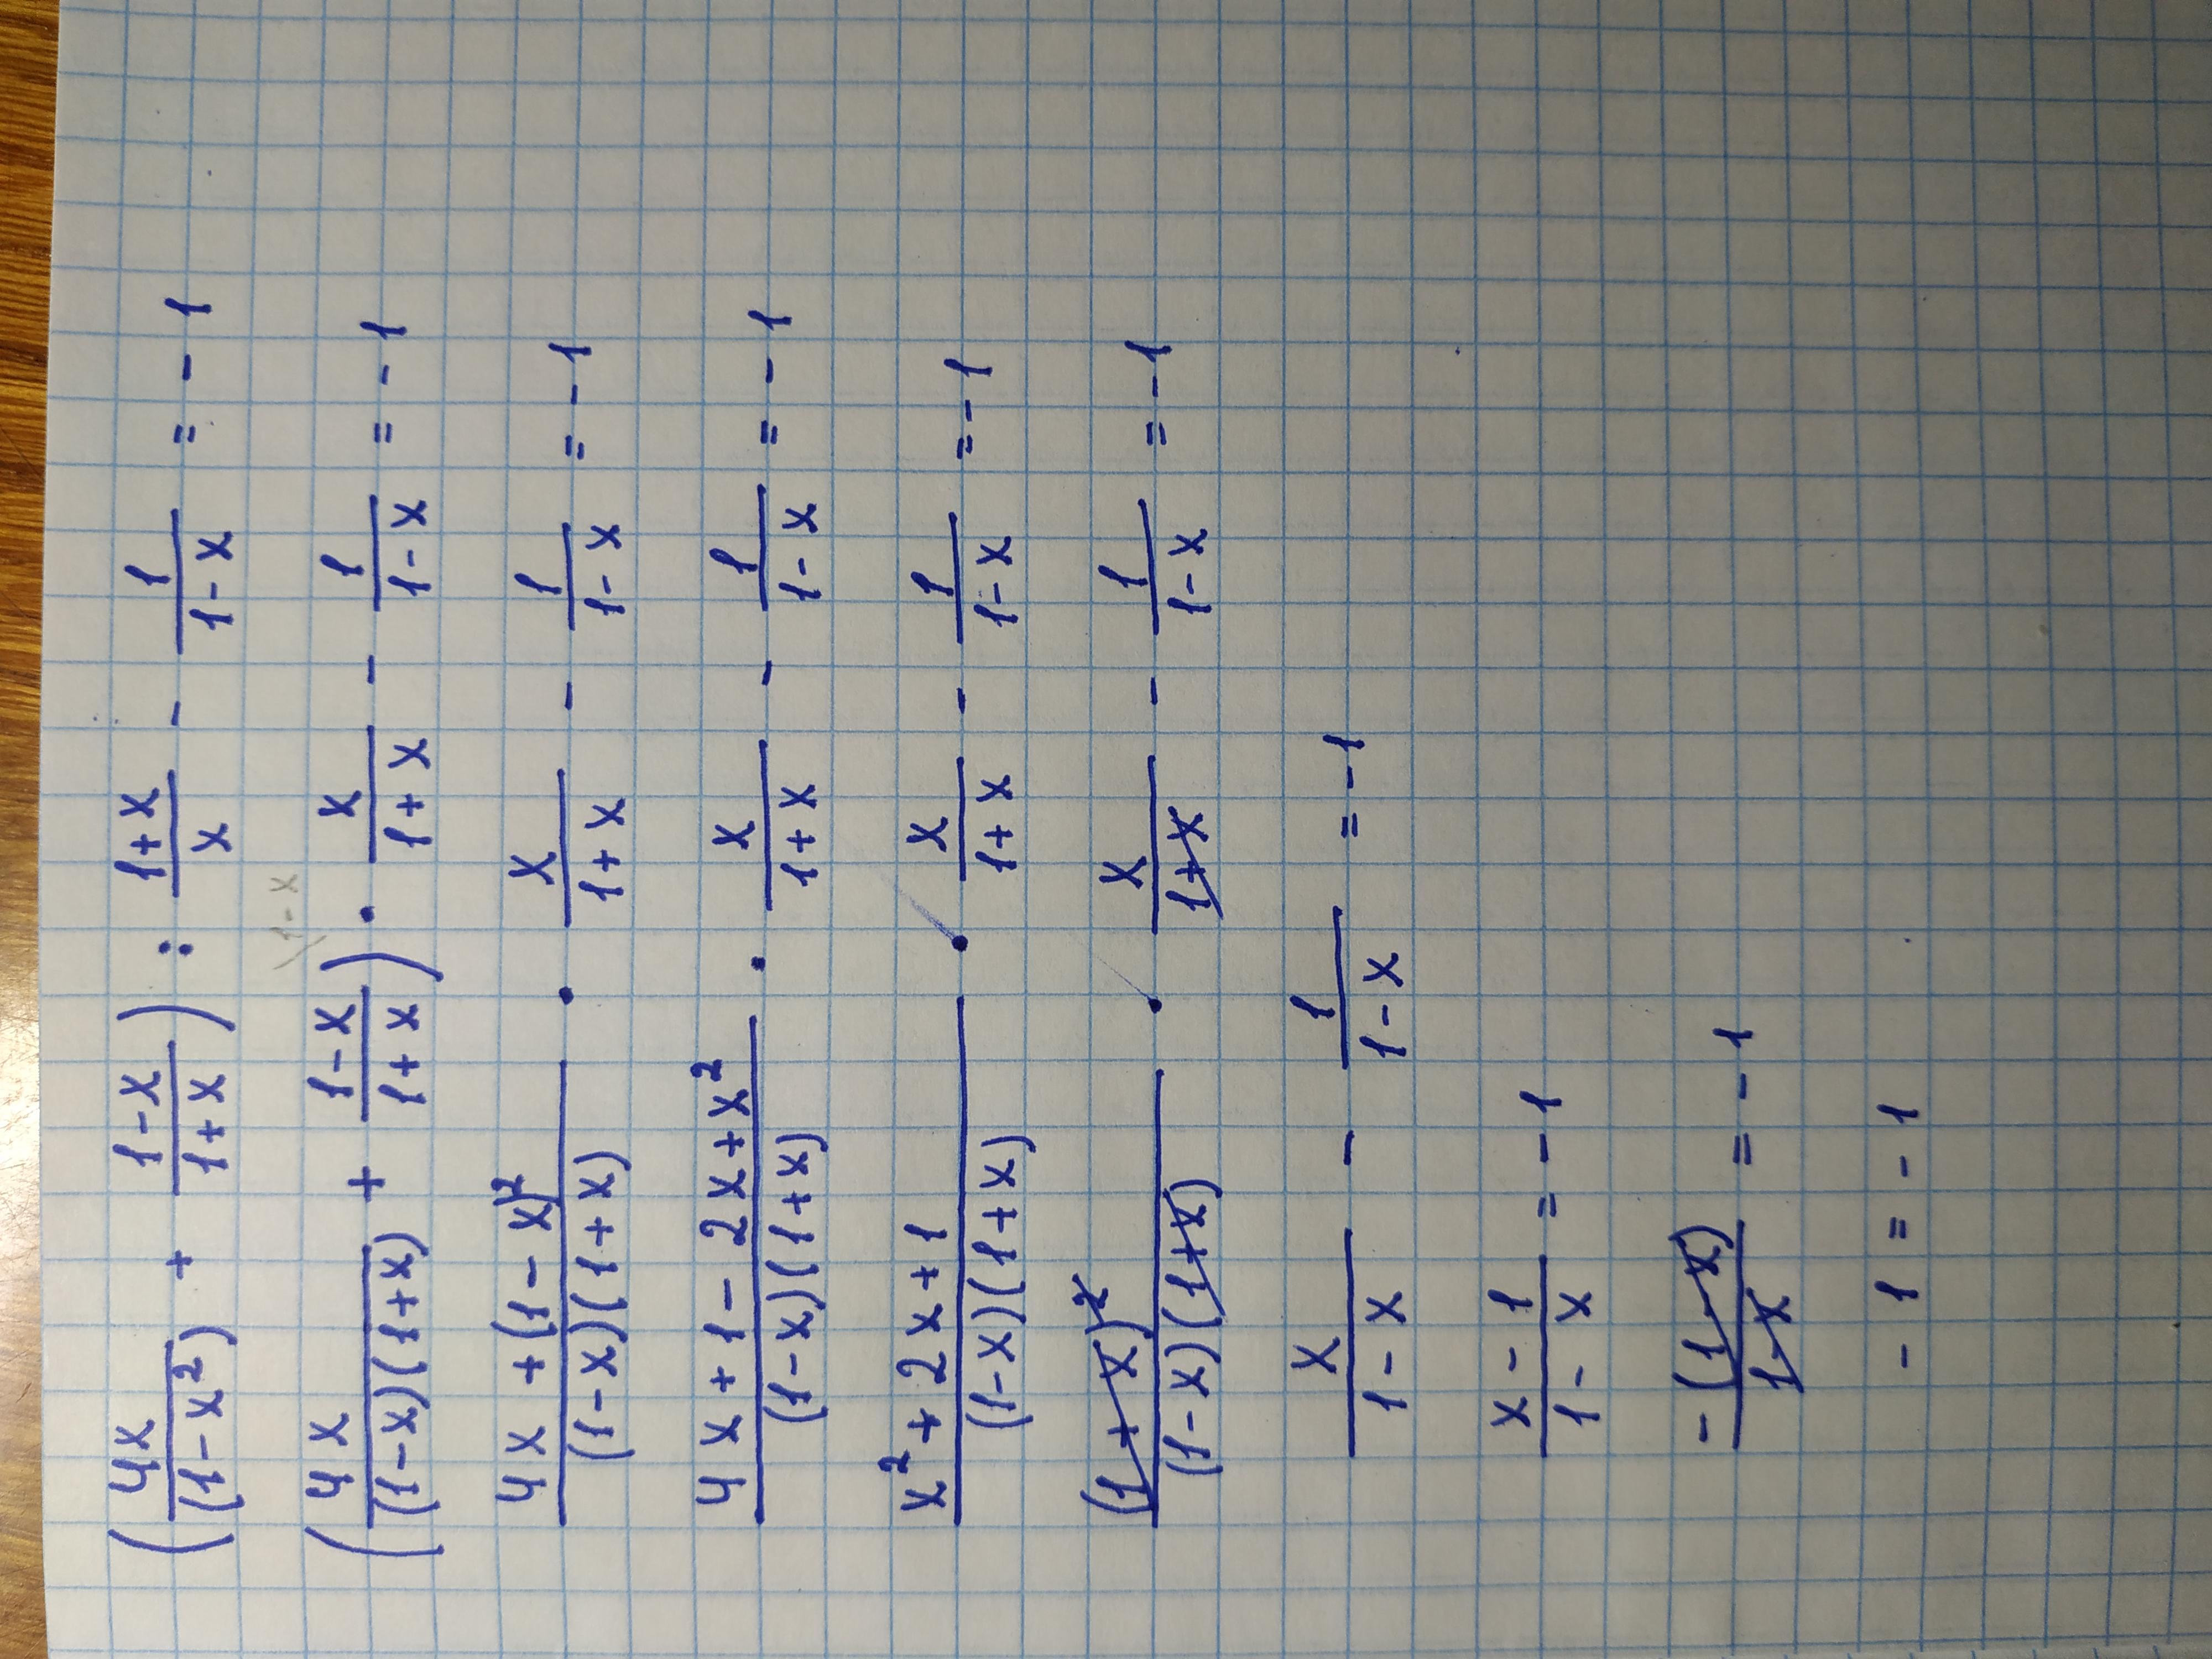 (4x/(1-x²) + (1-x)/(1+x)) : (1+x)/x - 1/(1-x) = -1
(4x/((1-x)(1+x)) + (1-x)/(1+x)) · x/(1+x) - 1/(1-x) = -1
(4x+(1-x)²)/((1-x)(1+x)) · x/(1+x) - 1/(1-x) = -1
(4x+1-2x+x²)/((1-x)(1+x)) · x/(1+x) - 1/(1-x) = -1
(x²+2x+1)/((1-x)(1+x)) · x/(1+x) - 1/(1-x) = -1
(1+x)²/((1-x)(1+x)) · x/(1+x) - 1/(1-x) = -1
x/(1-x) - 1/(1-x) = -1
(x-1)/(1-x) = -1
-(1-x)/(1-x) = -1
-1 = -1